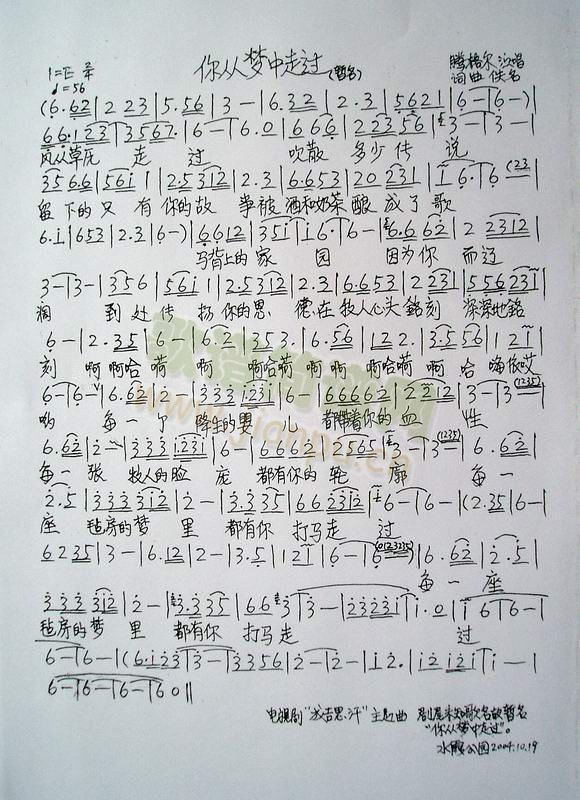 你从梦中走过(暂名)
1=E 2/4
♩=56
腾格尔演唱
词曲佚名
(6·62|2 23|5·56|3 —|6·32|2·3|5621|6 —|6 —)|
66·123|3567·|6 —|6·0|666|22356|3 —|3 —|
风从草庑 走 过 吹散 多少传 说
3566|561 1|2·5312|2·3|6·653|20 231|1 6·|6
留下的只 有你的故 事被酒和奶茶酿 成了歌
6·1|653|2·3|6 —)|6612|351|16·|6 —|6·662|2 2312|
马背上的家 园 因为你 而过
3 —|3 —|356|561 1|2·5312|2·3|6·653|2 231|556231|
到处传扬你的恩 德在牧人心头铭刻 深深地铭
6 —|2·35|6 —|6·2|353·|6·56|122·|3·556|121|
刻 啊啊哈嗬 啊 啊哈嗬啊啊 啊哈嗬啊哈 嗨侬哎
6 —|6 —|6·62|2 —|333 1231|6 —|66662|2212|3 —|3 —(1235)|
哟 每一个 降生的婴 儿 都带着你的血 性
6·62|2 —|333 1231|6 —|6662|2565|3 —|3 —(1235)|6·62|
每一张 牧人的脸 庞 都有你的轮 廓 每一
2·5|3333312|2 —|3·335|662312|6 —|6 —|(2·35|6 —|
座 毡房的梦 里 都有你 打马走 过
6235|3 —|6·12|2 —|3·5|121|6 —|6 —(0123235)|6·62|2·5|
每一座
333 312|2 —|3·335|663|3 —|23231|1·0|1 6|6 —|
毡房的梦 里 都有你 打马走 过
6 —|6 —|(6·123|3 —|3356|2 —|2 —|12·|12 121|1 —|
6 —|6 —|6 —|60‖
电视剧"成吉思汗"主题曲 剧尾未知歌名故暂名
"你从梦中走过"。
水鸭公园2004.10.19